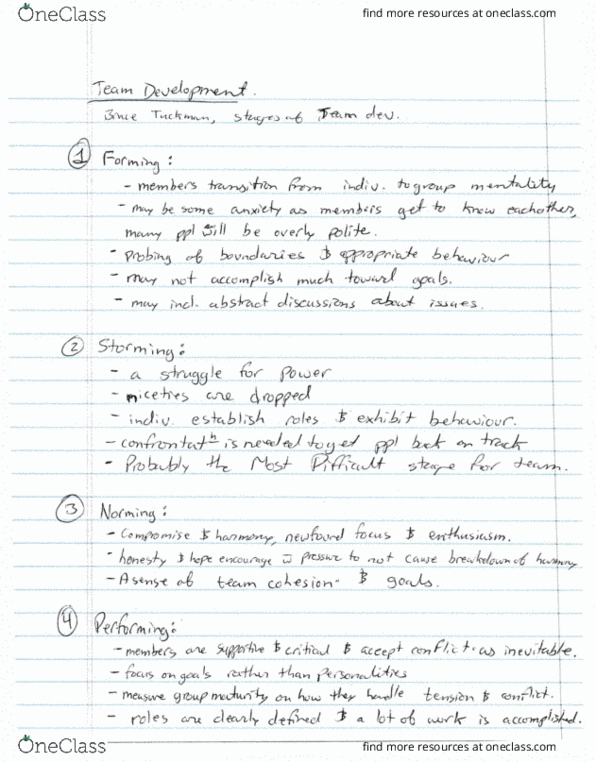 OneClass
find more resources at oneclass.com
Team Development.
Bruce Tuckman, stages of Team dev.
1 Forming:
- members transition from indiv. to group mentality
- may be some anxiety as members get to know eachother,
many ppl will be overly polite.
- Probing of boundaries & appropriate behaviour
- may not accomplish much toward goals.
- may incl. abstract discussions about issues.
2 Storming:
- a struggle for power
- niceties are dropped
- indiv. establish roles & exhibit behaviour.
- confrontatn is needed to get ppl back on track
- Probably the Most Difficult stage for team.
3 Norming:
- Compromise & harmony, newfound focus & enthusiasm.
- honesty & hope encourage pressure to not cause breakdown of harmony
- A sense of team cohesion & goals.
4 Performing:
- members are supportive & critical & accept conflict as inevitable.
- focus on goals rather than personalities
- measure group maturity on how they handle tension & conflict.
- roles are clearly defined & a lot of work is accomplished.
OneClass
find more resources at oneclass.com